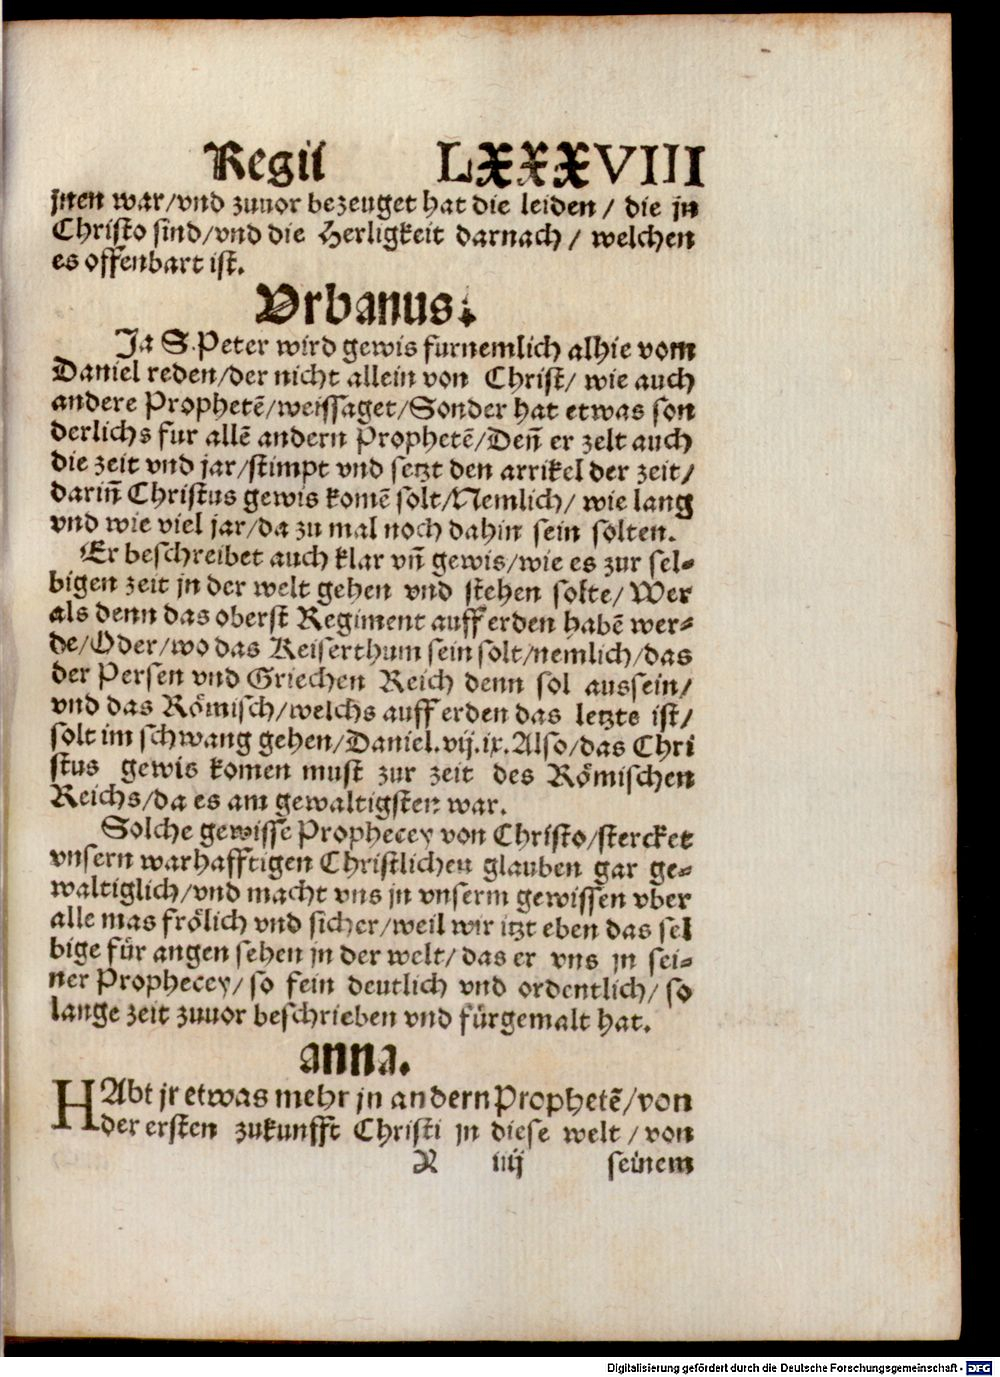 Regii LXXXVIII
jnen war/vnd zuuor bezeuget hat die leiden / die jn
Christo sind/vnd die Herligkeit darnach / welchen
es offenbart ist.
Vrbanus.
Ja S. Peter wird gewis furnemlich alhie vom
Daniel reden/der nicht allein von Christ/ wie auch
andere Prophetē/weissaget/Sonder hat etwas son
derlichs fur allē andern Prophetē/Deñ er zelt auch
die zeit vnd jar/stimpt vnd setzt den artikel der zeit/
dariñ Christus gewis komē solt/Nemlich/ wie lang
vnd wie viel jar/da zu mal noch dahin sein solten.
Er beschreibet auch klar vñ gewis/wie es zur sel⸗
bigen zeit jn der welt gehen vnd stehen solte/ Wer
als denn das oberst Regiment auff erden habē wer⸗
de/Oder/wo das Keiserthum sein solt/nemlich/das
der Persen vnd Griechen Reich denn sol aussein/
vnd das Römisch/welchs auff erden das letzte ist/
solt im schwang gehen/Daniel.vij.ix.Also/das Chri
stus gewis komen must zur zeit des Römischen
Reichs/da es am gewaltigsten war.
Solche gewisse Prophecey von Christo/stercket
vnsern warhafftigen Christlichen glauben gar ge⸗
waltiglich/vnd macht vns jn vnserm gewissen vber
alle mas frölich vnd sicher/weil wir itzt eben das sel
bige für angen sehen jn der welt/ das er vns jn sei⸗
ner Prophecey/ so fein deutlich vnd ordentlich/ so
lange zeit zuuor beschrieben vnd fürgemalt hat.
anna.
HAbt jr etwas mehr jn andern Prophetē/von
der ersten zukunfft Christi jn diese welt / von
R iiij seinem
Digitalisierung gefördert durch die Deutsche Forschungsgemeinschaft - DFG